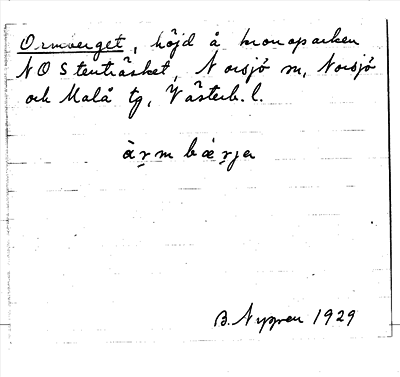 Ormberget, höjd å kronoparken
NO Stenträsket, Norsjö sn, Norsjö
och Malå tg, Västerb. l.
ärm bærjer
B. Nyman 1929